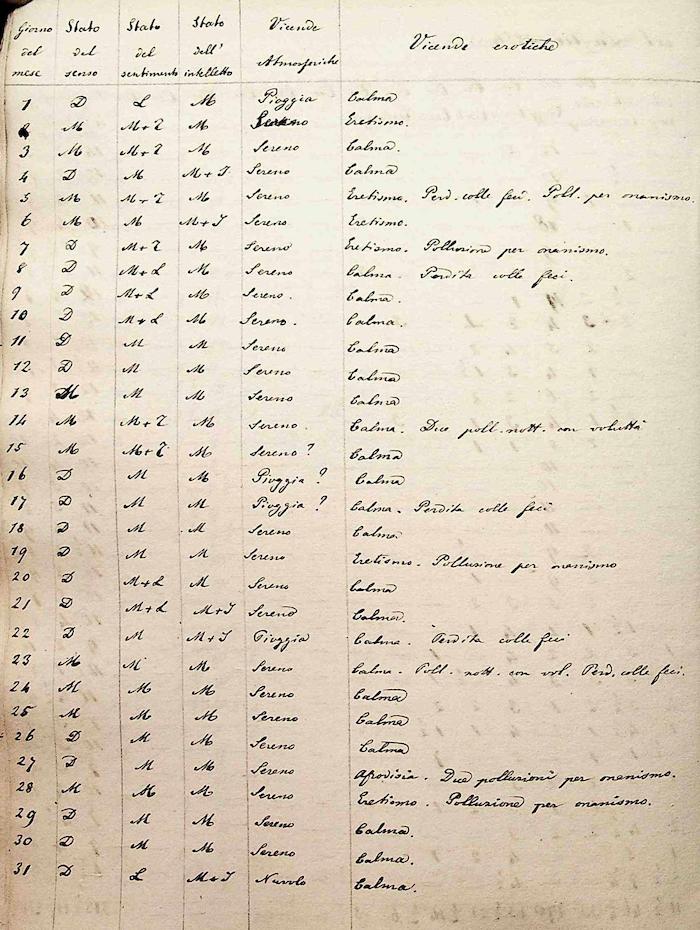 Giorno del mese Stato del senso Stato del sentimento Stato dell' intelletto Vicende Atmosferiche Vicende erotiche
1 D L M Pioggia Calma
2 M M+T M Sereno Eretismo.
3 M M+T M Sereno Calma.
4 D M M+I Sereno Calma
5 M M+T M Sereno Eretismo. Perd. colle feci. Poll. per onanismo.
6 M M M+I Sereno Eretismo.
7 D M+T M Sereno Eretismo. Polluzione per onanismo.
8 D M+L M Sereno Calma. Perdita colle feci.
9 D M+L M Sereno. Calma.
10 D M+L M Sereno. Calma.
11 D M M Sereno Calma
12 D M M Sereno Calma
13 M M M Sereno Calma
14 M M+T M Sereno. Calma. Due poll. nott. con voluttà
15 M M+T M Sereno? Calma
16 D M M Pioggia? Calma
17 D M M Pioggia? Calma. Perdita colle feci
18 D M M Sereno Calma.
19 D M M Sereno Eretismo. Polluzione per onanismo
20 D M+L M Sereno Calma
21 D M+L M+I Sereno Calma.
22 D M M+I Pioggia Calma. Perdita colle feci
23 M M M Sereno Calma. Poll. nott. con vol. Perd. colle feci.
24 M M M Sereno Calma
25 M M M Sereno Calma
26 D M M Sereno Calma
27 D M M Sereno Afrodisia. Due polluzioni per onanismo.
28 M M M Sereno Eretismo. Polluzione per onanismo.
29 D M M Sereno Calma.
30 D M M Sereno Calma.
31 D L M+I Nuvolo Calma.